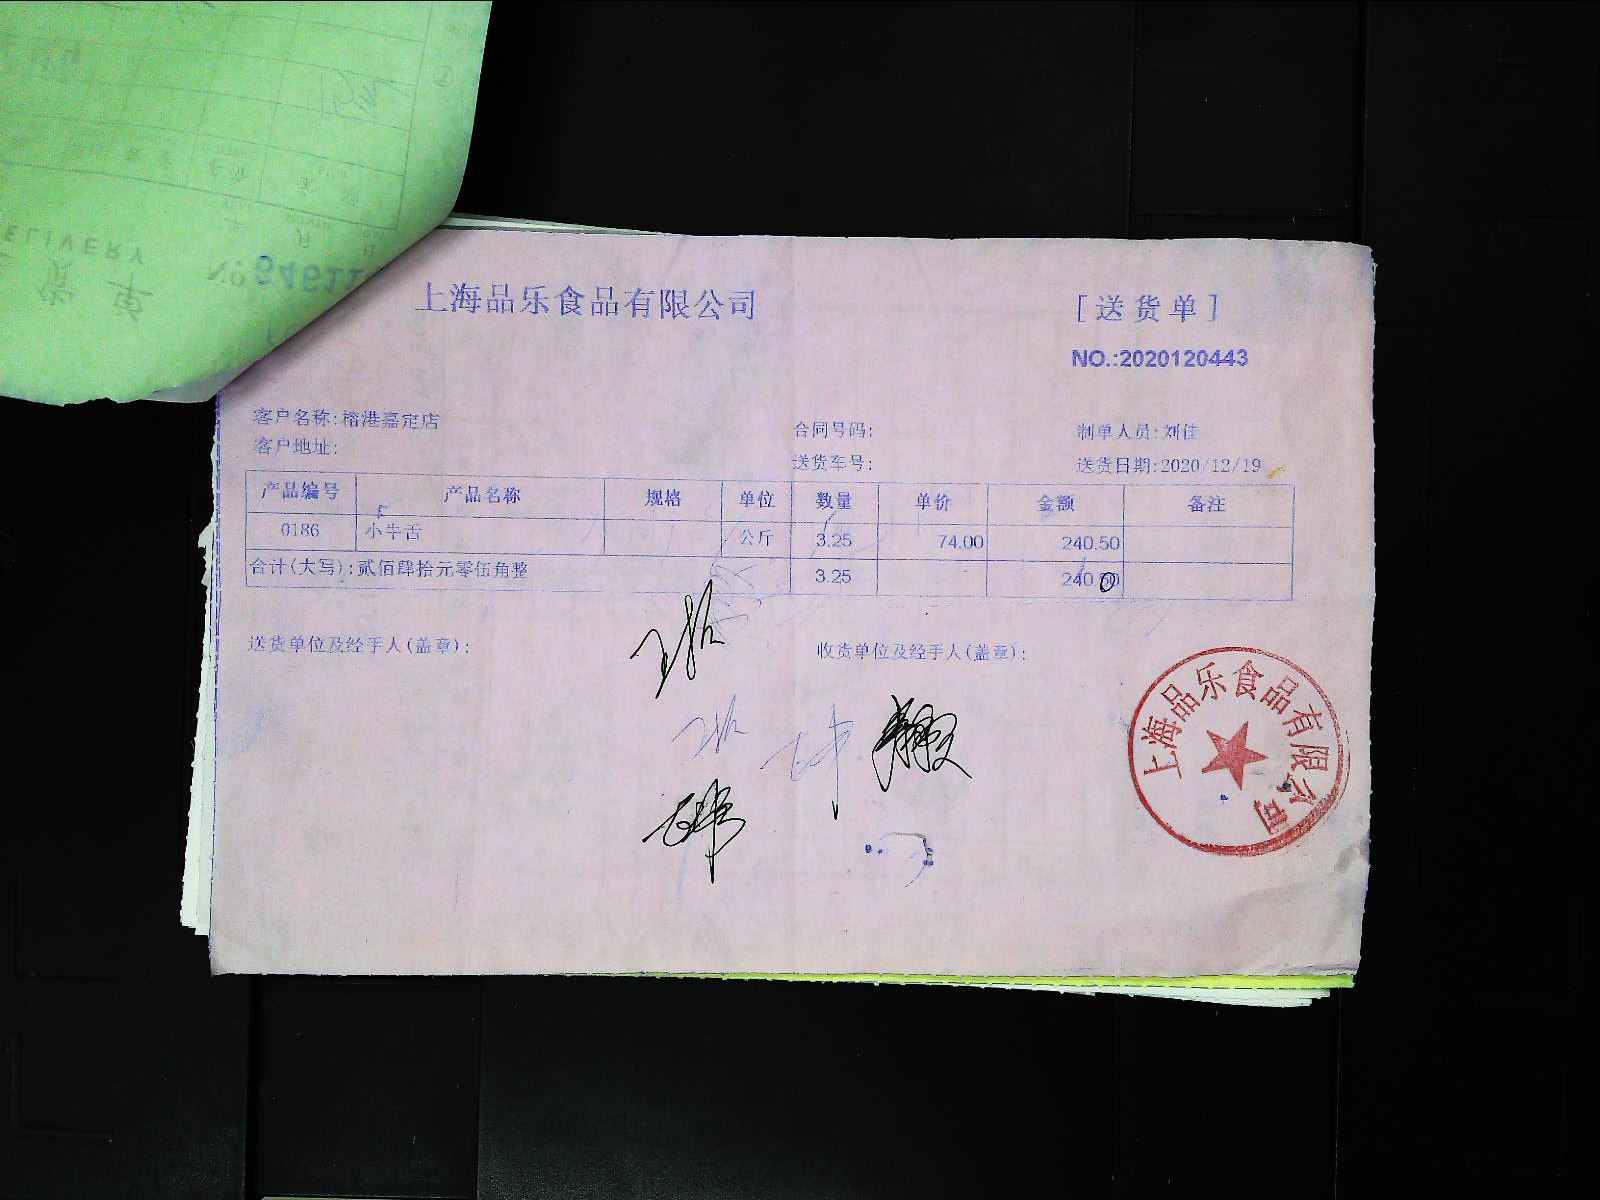 上海品乐食品有限公司
[送货单]
NO.:2020120443
客户名称:榕港嘉定店
合同号码:
制单人员:刘佳
客户地址:
送货车号:
送货日期:2020/12/19
产品编号 产品名称 规格 单位 数量 单价 金额 备注
0186 小牛舌 公斤 3.25 74.00 240.50
合计(大写):贰佰肆拾元零伍角整 3.25 240.50
送货单位及经手人(盖章):
收货单位及经手人(盖章):
上海品乐食品有限公司